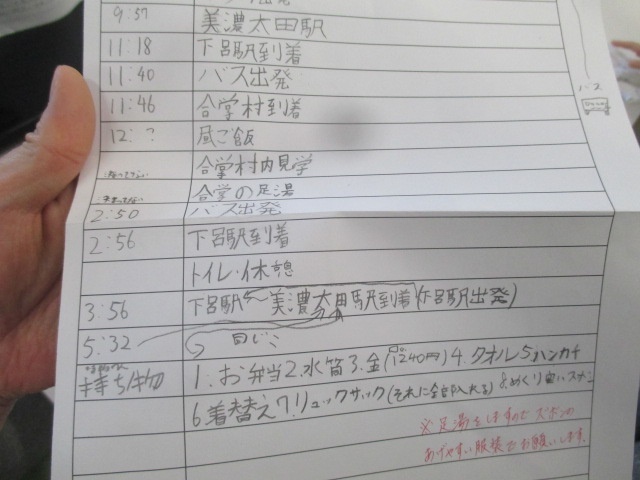 9:57 美濃太田駅
11:18 下呂駅到着
11:40 バス出発
11:46 合掌村到着
バス
12:? 昼ご飯
合掌村内見学
合掌の足湯
2:50 バス出発
2:56 下呂駅到着
トイレ・休憩
3:56 下呂駅〜美濃太田駅到着(下呂駅出発)
5:32 同じ
持ち物 1.お弁当2.水筒3.金(1240円)4.タオル5.ハンカチ
6.着替え7.リュックサック(それに全部入れる)
※足湯をしますのでズボンの
あげやすい服装でお願いします。